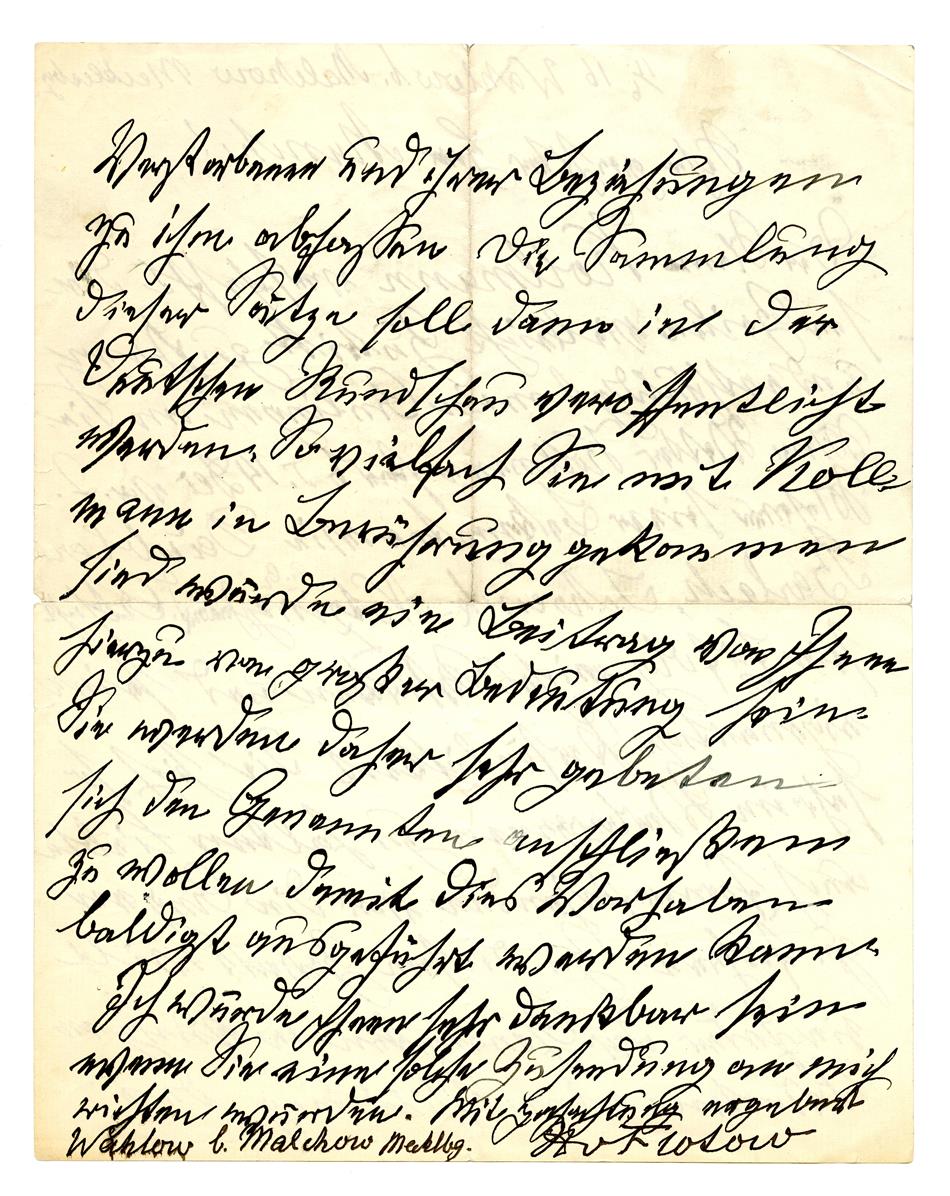 Verstorbenen und ihrer Beziehungen
zu ihm abfassen Die Sammlung
dieser Sätze soll dann in der
Deutschen Rundschau veröffentlicht
werden. So vielfach Sie mit Koll-
mann in Berührung gekommen
sind würde ein Beitrag von Ihnen
hierzu von großer Bedeutung sein.
Sie werden daher sehr gebeten
sich den Genannten anschließen
zu wollen damit dies Vorhaben
baldigst ausgeführt werden kann.
Ich würde Ihnen sehr dankbar sein
wenn Sie eine solche Zusendung an mich
richten würden. Mit Hochachtung ergebenst
Wahlow b. Malchow Meklbg. v Flotow